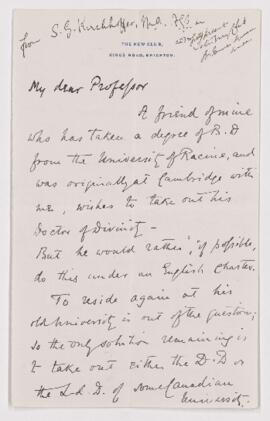 from S. G. Kirchhoffer, M.A., F.C.S.
THE NEW CLUB,
KINGS ROAD, BRIGHTON.
My dear Professor
A friend of mine
who has taken a degree of B.D
from the University of Racine, and
was originally at Cambridge with
me, wishes to take out his
Doctor of Divinity –
But he would rather, if possible,
do this under an English Charter.
To reside again at his
old University is out of the question;
so the only solution remaining is
to take out either the D.D or
the L.L.D. of some Canadian
University.